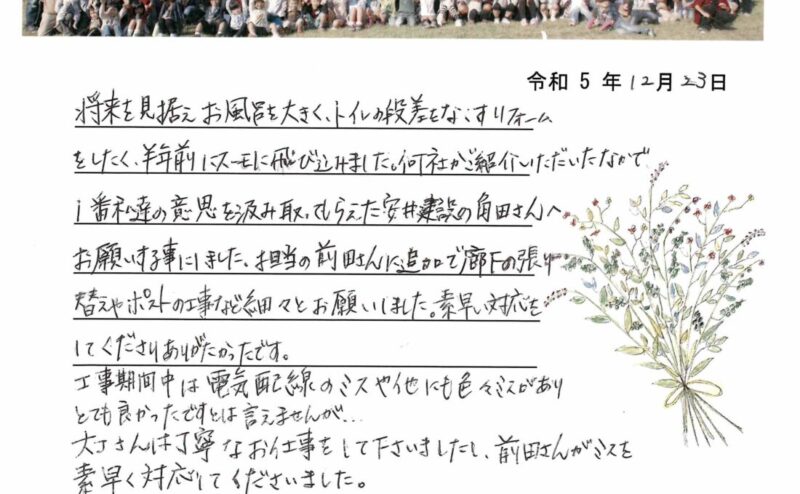 令和 5 年 12月 23日
将来を見据え お風呂を大きく、トイレの段差をなくすリフォーム
をしたく、半年前にスーモに飛び込みました。何社かご紹介いただいたなかで
1番私達の意思を汲み取ってもらえた安井建設の角田さんへ
お願いする事にしました、担当の前田さんに追加で廊下の張り
替えやポストの工事など細々とお願いしました。素早い対応を
してくださりありがたかったです。
工事期間中は電気配線のミスや他にも色々ミスがあり
とても良かったですとは言えませんが…
大工さんは丁寧なお仕事をして下さいましたし、前田さんがミスを
素早く対応してくださいました。